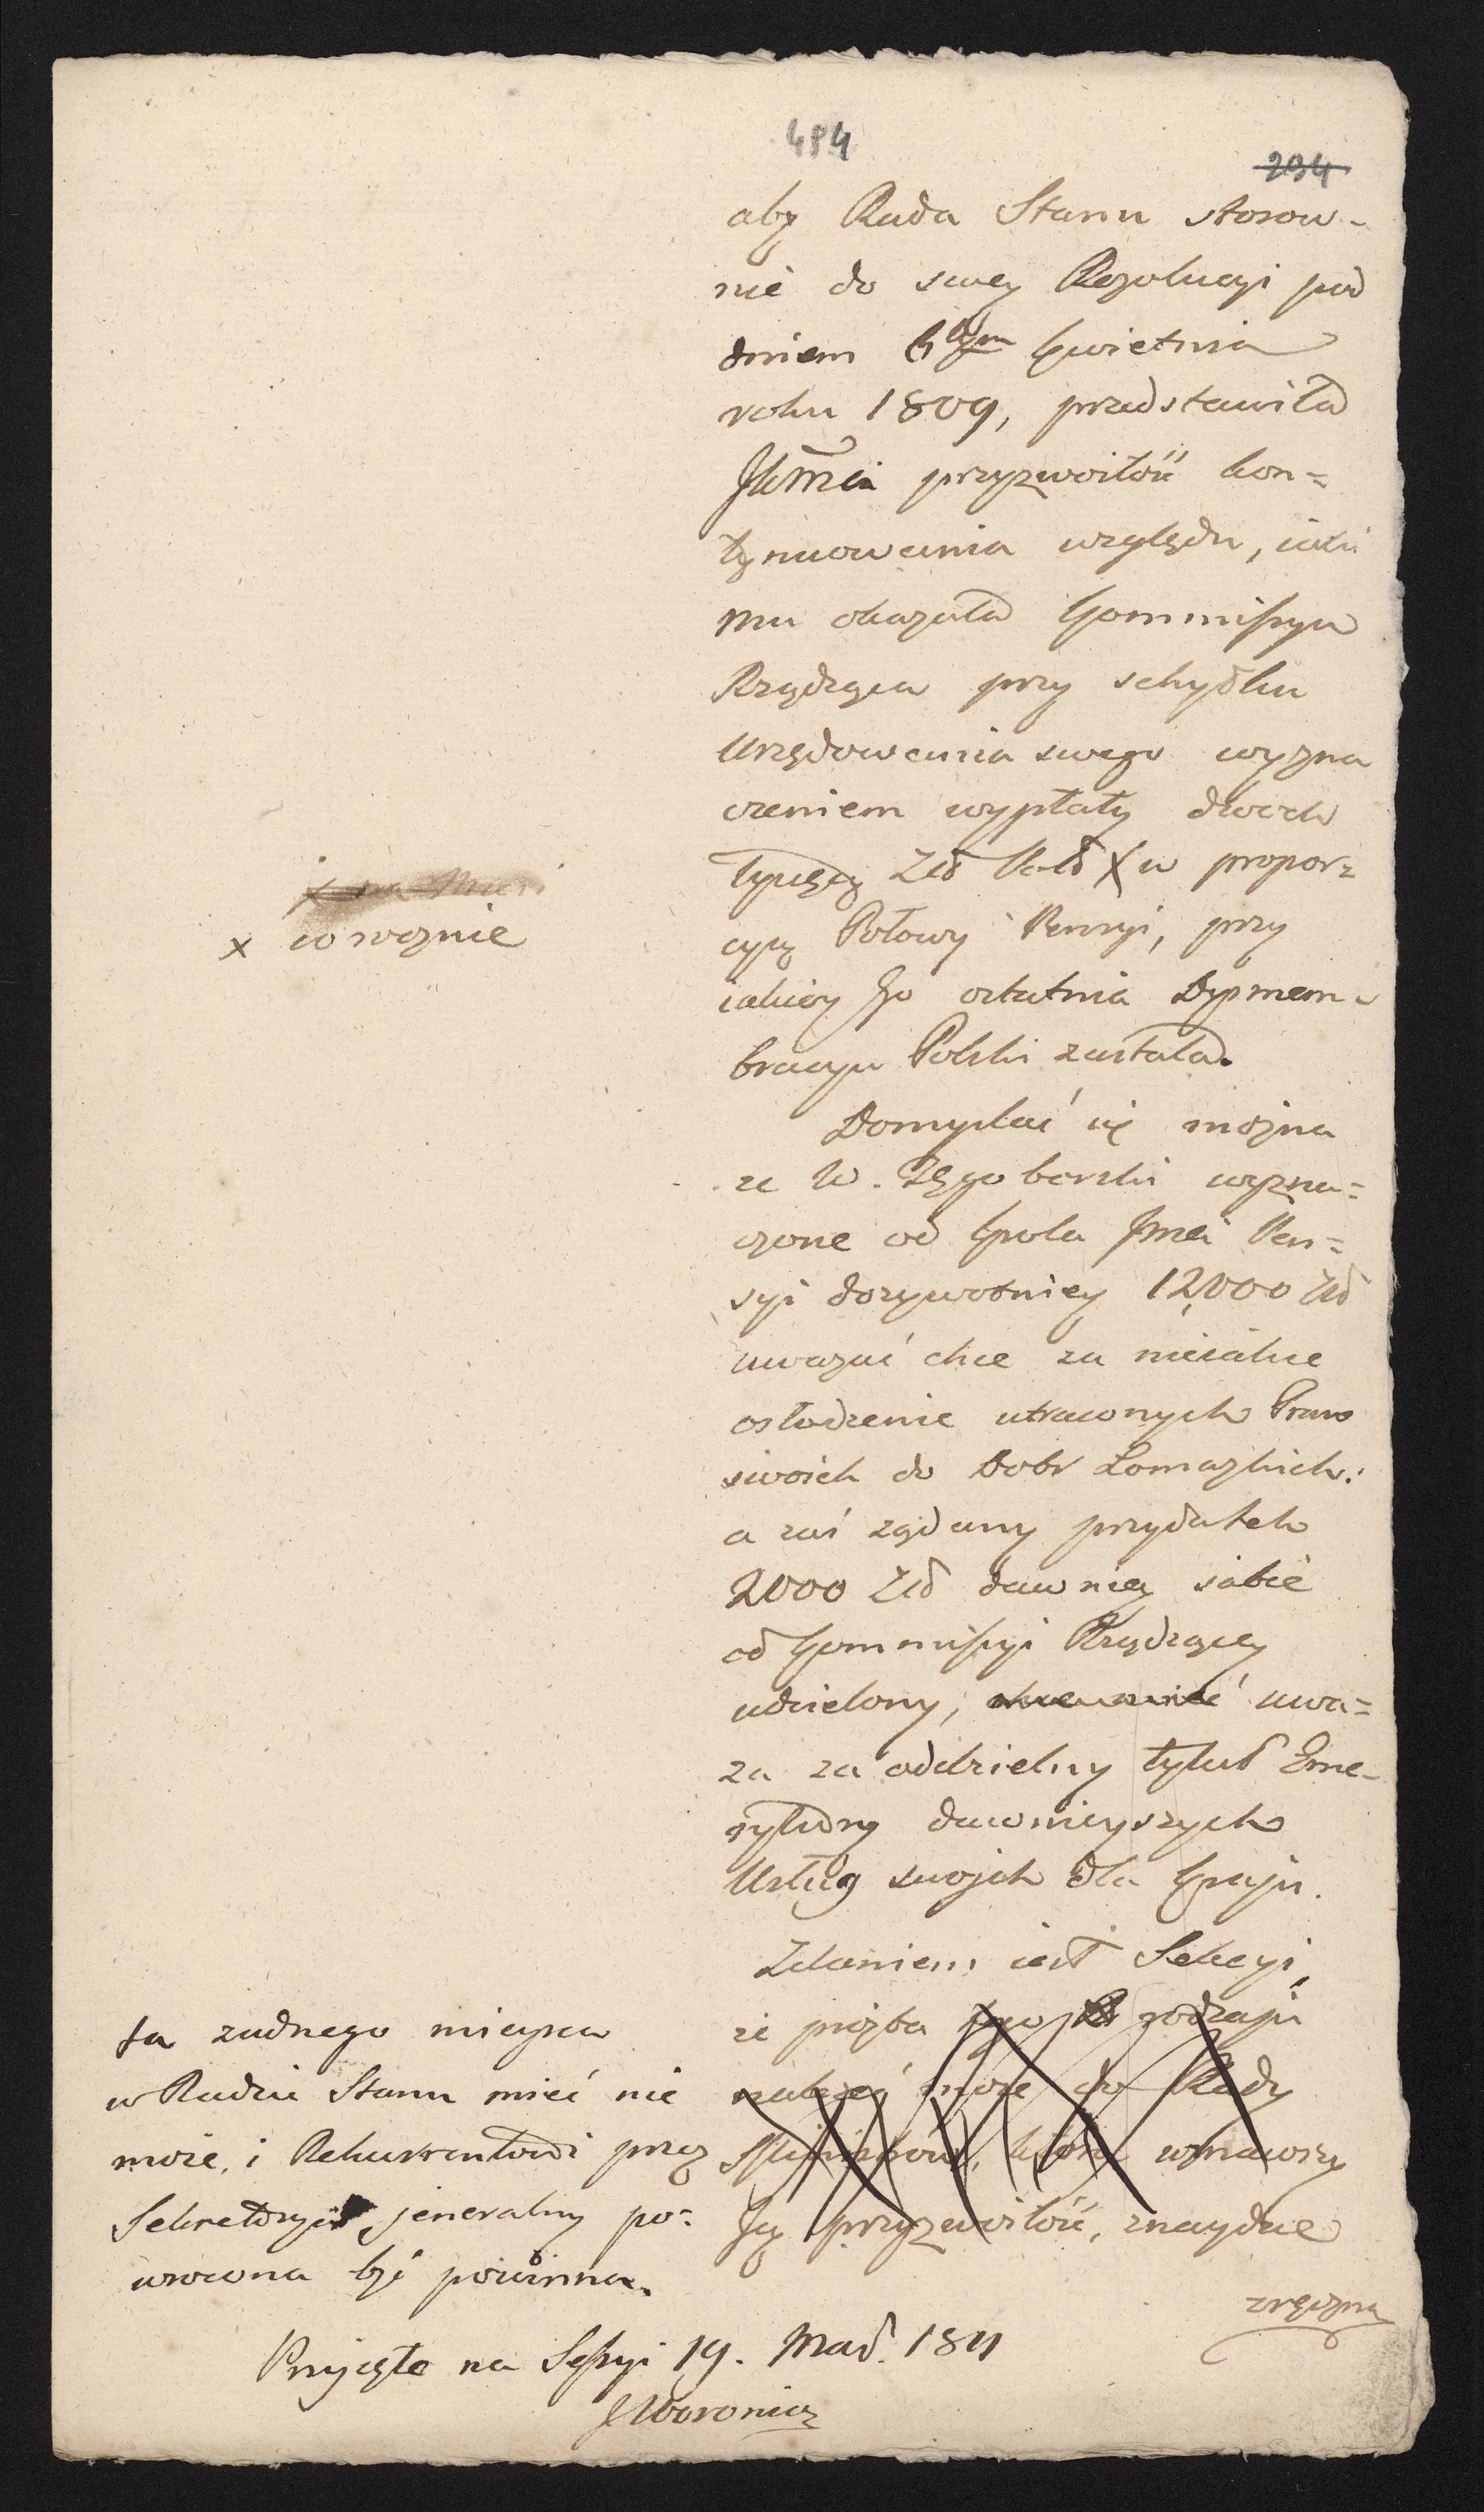 484
294
aby Rada Stanu stosow-
nie do swey Rezolucyi pod
dniem 6tym Kwietnia
roku 1809, przedstawiła
JKMci przyzwoitość kon=
tynuowania względu, iaki
mu okazała Kommissya
Rządząca przy schyłku
Urzędowania swego wyzna
czeniem wypłaty dwóch
tysięcy Złł x w propor=
cyą Połowy Pensyi, przy
iakiey Go ostatnia Dysmem-
bracya Polski zastała.
Domyślać się można
ze W. Zęgoborski wyzna=
czone od Króla Jmci Pen=
syi dozywotniey 12,000 Złł
uwazać chce za nieiakie
osłodzenie utraconych Praw
swoich do Dobr Łomazkich:
a zaś ządany przydatek
2000 Złł dawniey sobie
od Kommissyi Rządzącey
udzielony, uwa=
za za oddzielny tytuł Eme-
rytury dawnieyszych
Usług swojch dla Kraju.
Zdaniem iest Sekcyi,
że prożba tego rodzaju
należeć może do Rady
Ministrów, która uznawszy
Jey przyzwoitość, znaydzie
zręczną
x corocznie
ta zadnego mieysca
w Radzie Stanu mieć nie
może, i Rekurrentowi przez
Sekretaryat jeneralny po=
wrocona być powinna.
Przyjęto na Sessyi 19. Maď. 1811
JWoronicz